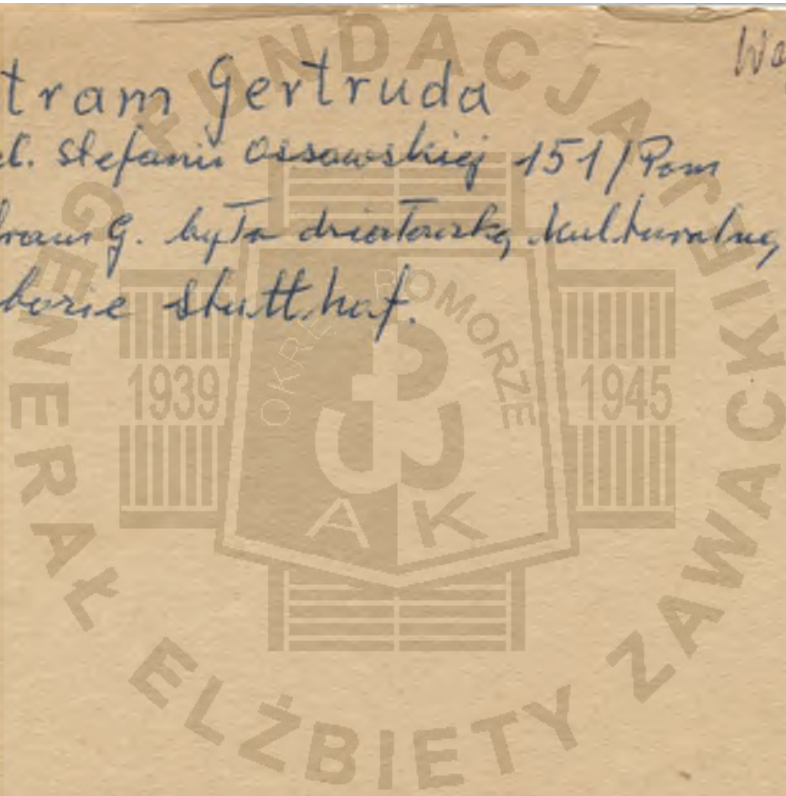 Wa
tram Gertruda
el. Stefanii Ossowskiej 151/Pom
tram G. była działaczką kulturalną,
borze Stutthof.
FUNDACJA
GENERAŁ ELŻBIETY ZAWACKIEJ
OKRĘG POMORZE
1939
1945
A K